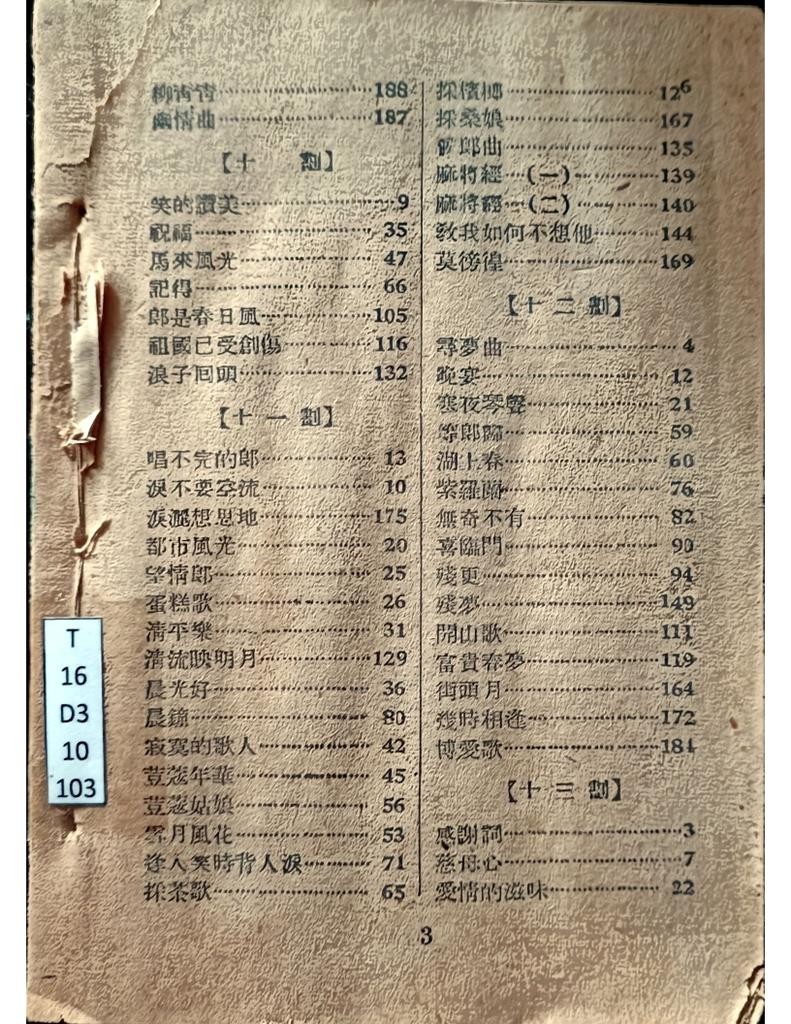 柳青青 188
幽情曲 187
【十 劃】
笑的讚美 9
祝福 35
馬來風光 47
記得 66
郎是春日風 105
祖國已受創傷 116
浪子回頭 132
【十一劃】
唱不完的郎 13
淚不要空流 10
淚灑想思地 175
都市風光 20
望情郎 25
蛋糕歌 26
清平樂 31
清流映明月 129
晨光好 36
晨鐘 80
寂寞的歌人 42
荳蔻年華 45
荳蔻姑娘 56
雪月風花 53
逢人笑時背人淚 71
採茶歌 65
採檳榔 126
採桑娘 167
郎曲 135
麻將經 (一) 139
麻將經 (二) 140
教我如何不想他 144
莫徬徨 169
【十二劃】
尋夢曲 4
晚宴 12
寒夜琴聲 21
等郎歸 59
湖上春 60
紫羅蘭 76
無奇不有 82
喜臨門 90
殘更 94
殘夢 149
開山歌 111
富貴春夢 119
街頭月 164
幾時相逢 172
博愛歌 184
【十三劃】
感謝詞 3
慈母心 7
愛情的滋味 22
3
T
16
D3
10
103